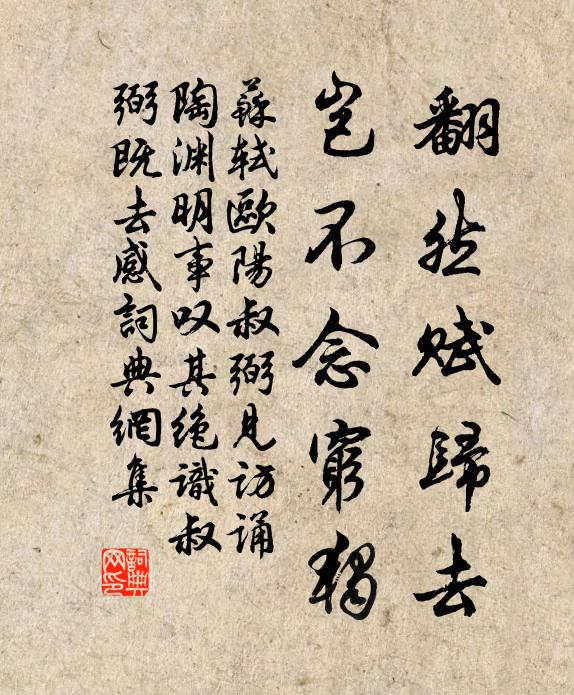 翻然賦歸去
豈不念窮獨
蘇軾歐陽叔弼見訪誦
陶渊明事叹其绝識叔
弼既去感詞典網集
詞典网印